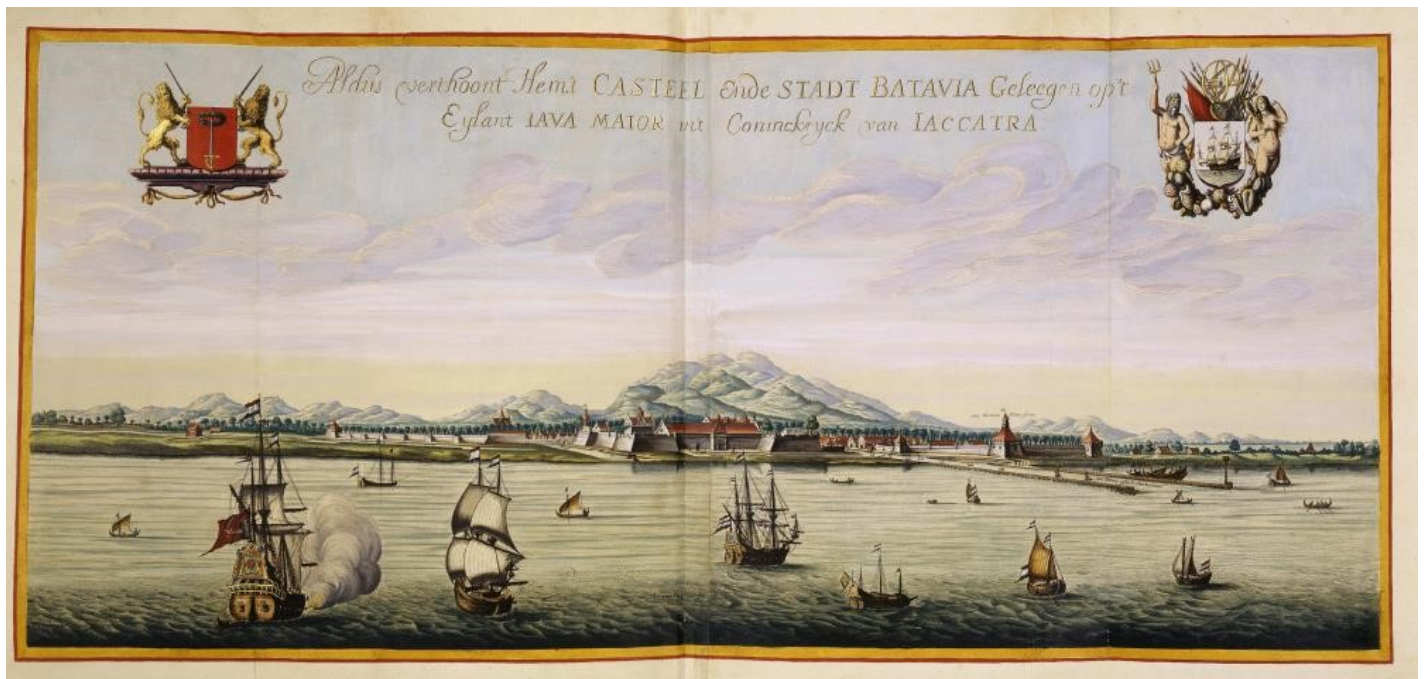 Aldus verthoont Hem't CASTEEL ende STADT BATAVIA Geleegen op't
Eylant IAVA MAIOR int Coninckryck van IACCATRA